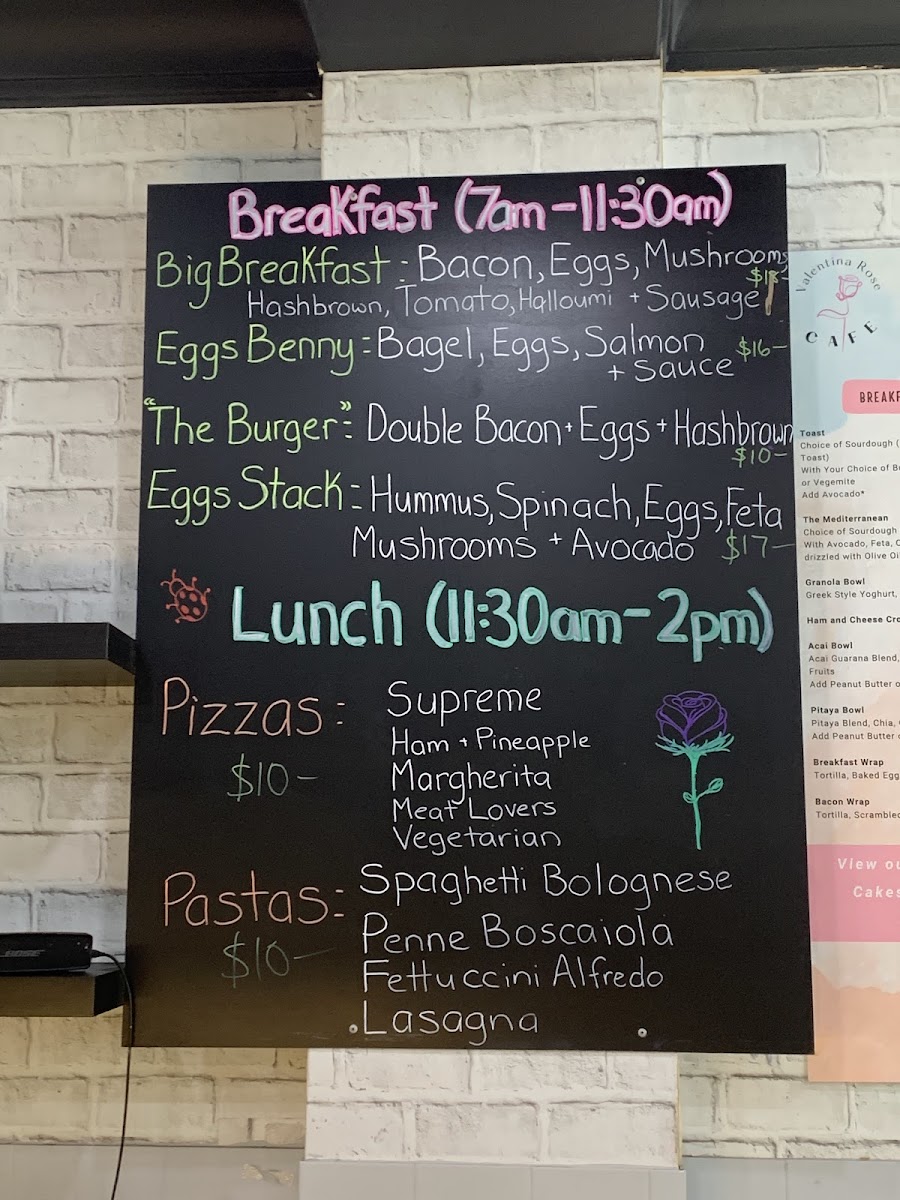 Breakfast (7am-11:30am)
Big Breakfast : Bacon, Eggs, Mushrooms
Hashbrown, Tomato, Halloumi + Sausage
Eggs Benny : Bagel, Eggs, Salmon
+ Sauce $16-
"The Burger" : Double Bacon + Eggs + Hashbrown
$10-
Eggs Stack : Hummus, Spinach, Eggs, Feta
Mushrooms + Avocado $17-
Lunch (11:30am-2pm)
Pizzas :
$10-
Supreme
Ham + Pineapple
Margherita
Meat Lovers
Vegetarian
Pastas :
$10-
Spaghetti Bolognese
Penne Boscaiola
Fettuccini Alfredo
Lasagna
Valentina Rose
CAFE
Toast
Choice of Sourdough (
Toast)
With Your Choice of
or Vegemite
Add Avocado*
The Mediterranean
Choice of Sourdough
With Avocado, Feta,
drizzled with Olive
Granola Bowl
Greek Style Yoghurt,
Ham and Cheese
Acai Bowl
Acai Guarana Blend,
Fruits
Add Peanut Butter
Pitaya Bowl
Pitaya Blend, Chia,
Add Peanut Butter
Breakfast Wrap
Tortilla, Baked
Bacon Wrap
Tortilla,
View
Cakes
BOSE